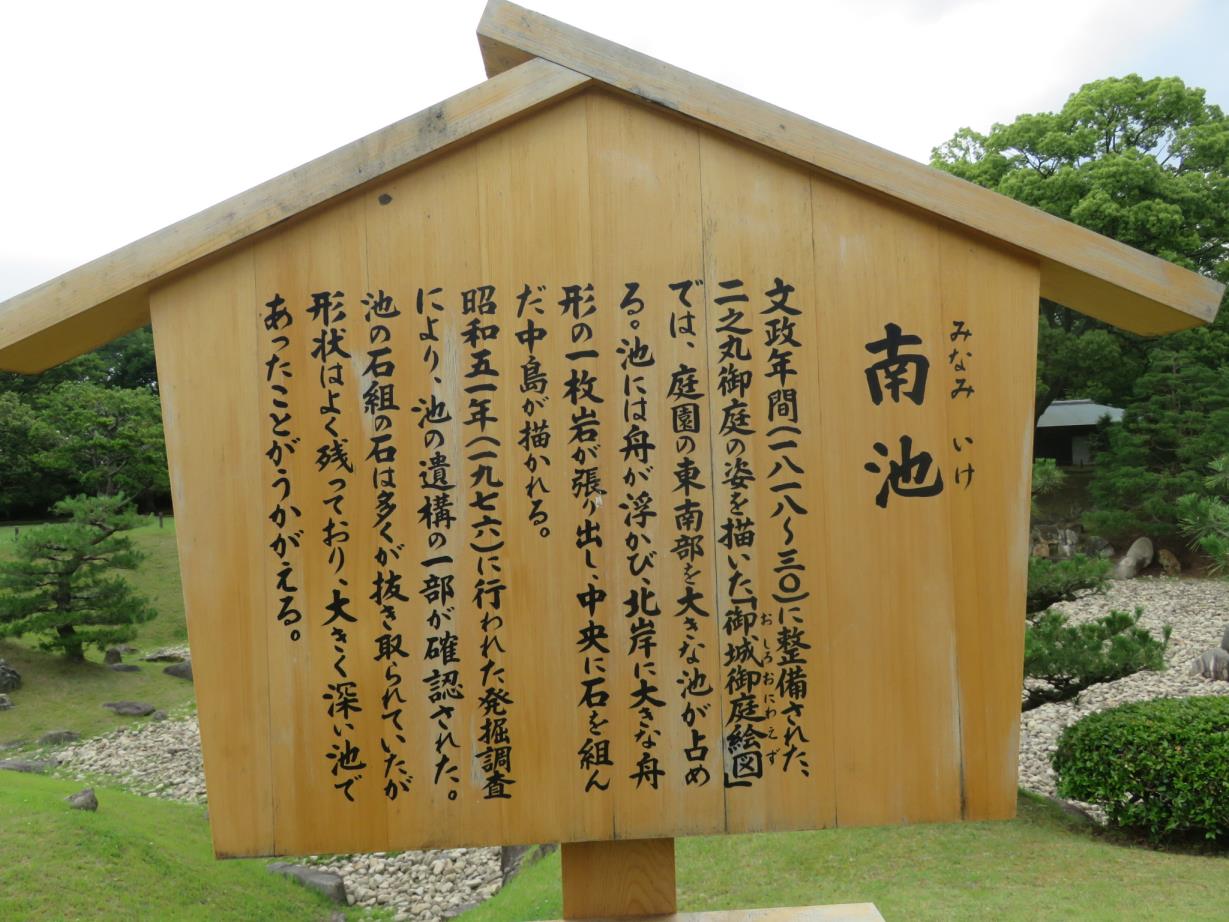 みなみ いけ
南池
文政年間(一八一八〜三〇)に整備された、
二之丸御庭の姿を描いた「御城御庭絵図」
おしろおにわえず
では、庭園の東南部を大きな池が占め
る。池には舟が浮かび、北岸に大きな舟
形の一枚岩が張り出し、中央に石を組ん
だ中島が描かれる。
昭和五一年(一九七六)に行われた発掘調査
により、池の遺構の一部が確認された。
池の石組の石は多くが抜き取られていたが
形状はよく残っており、大きく深い池で
あったことがうかがえる。